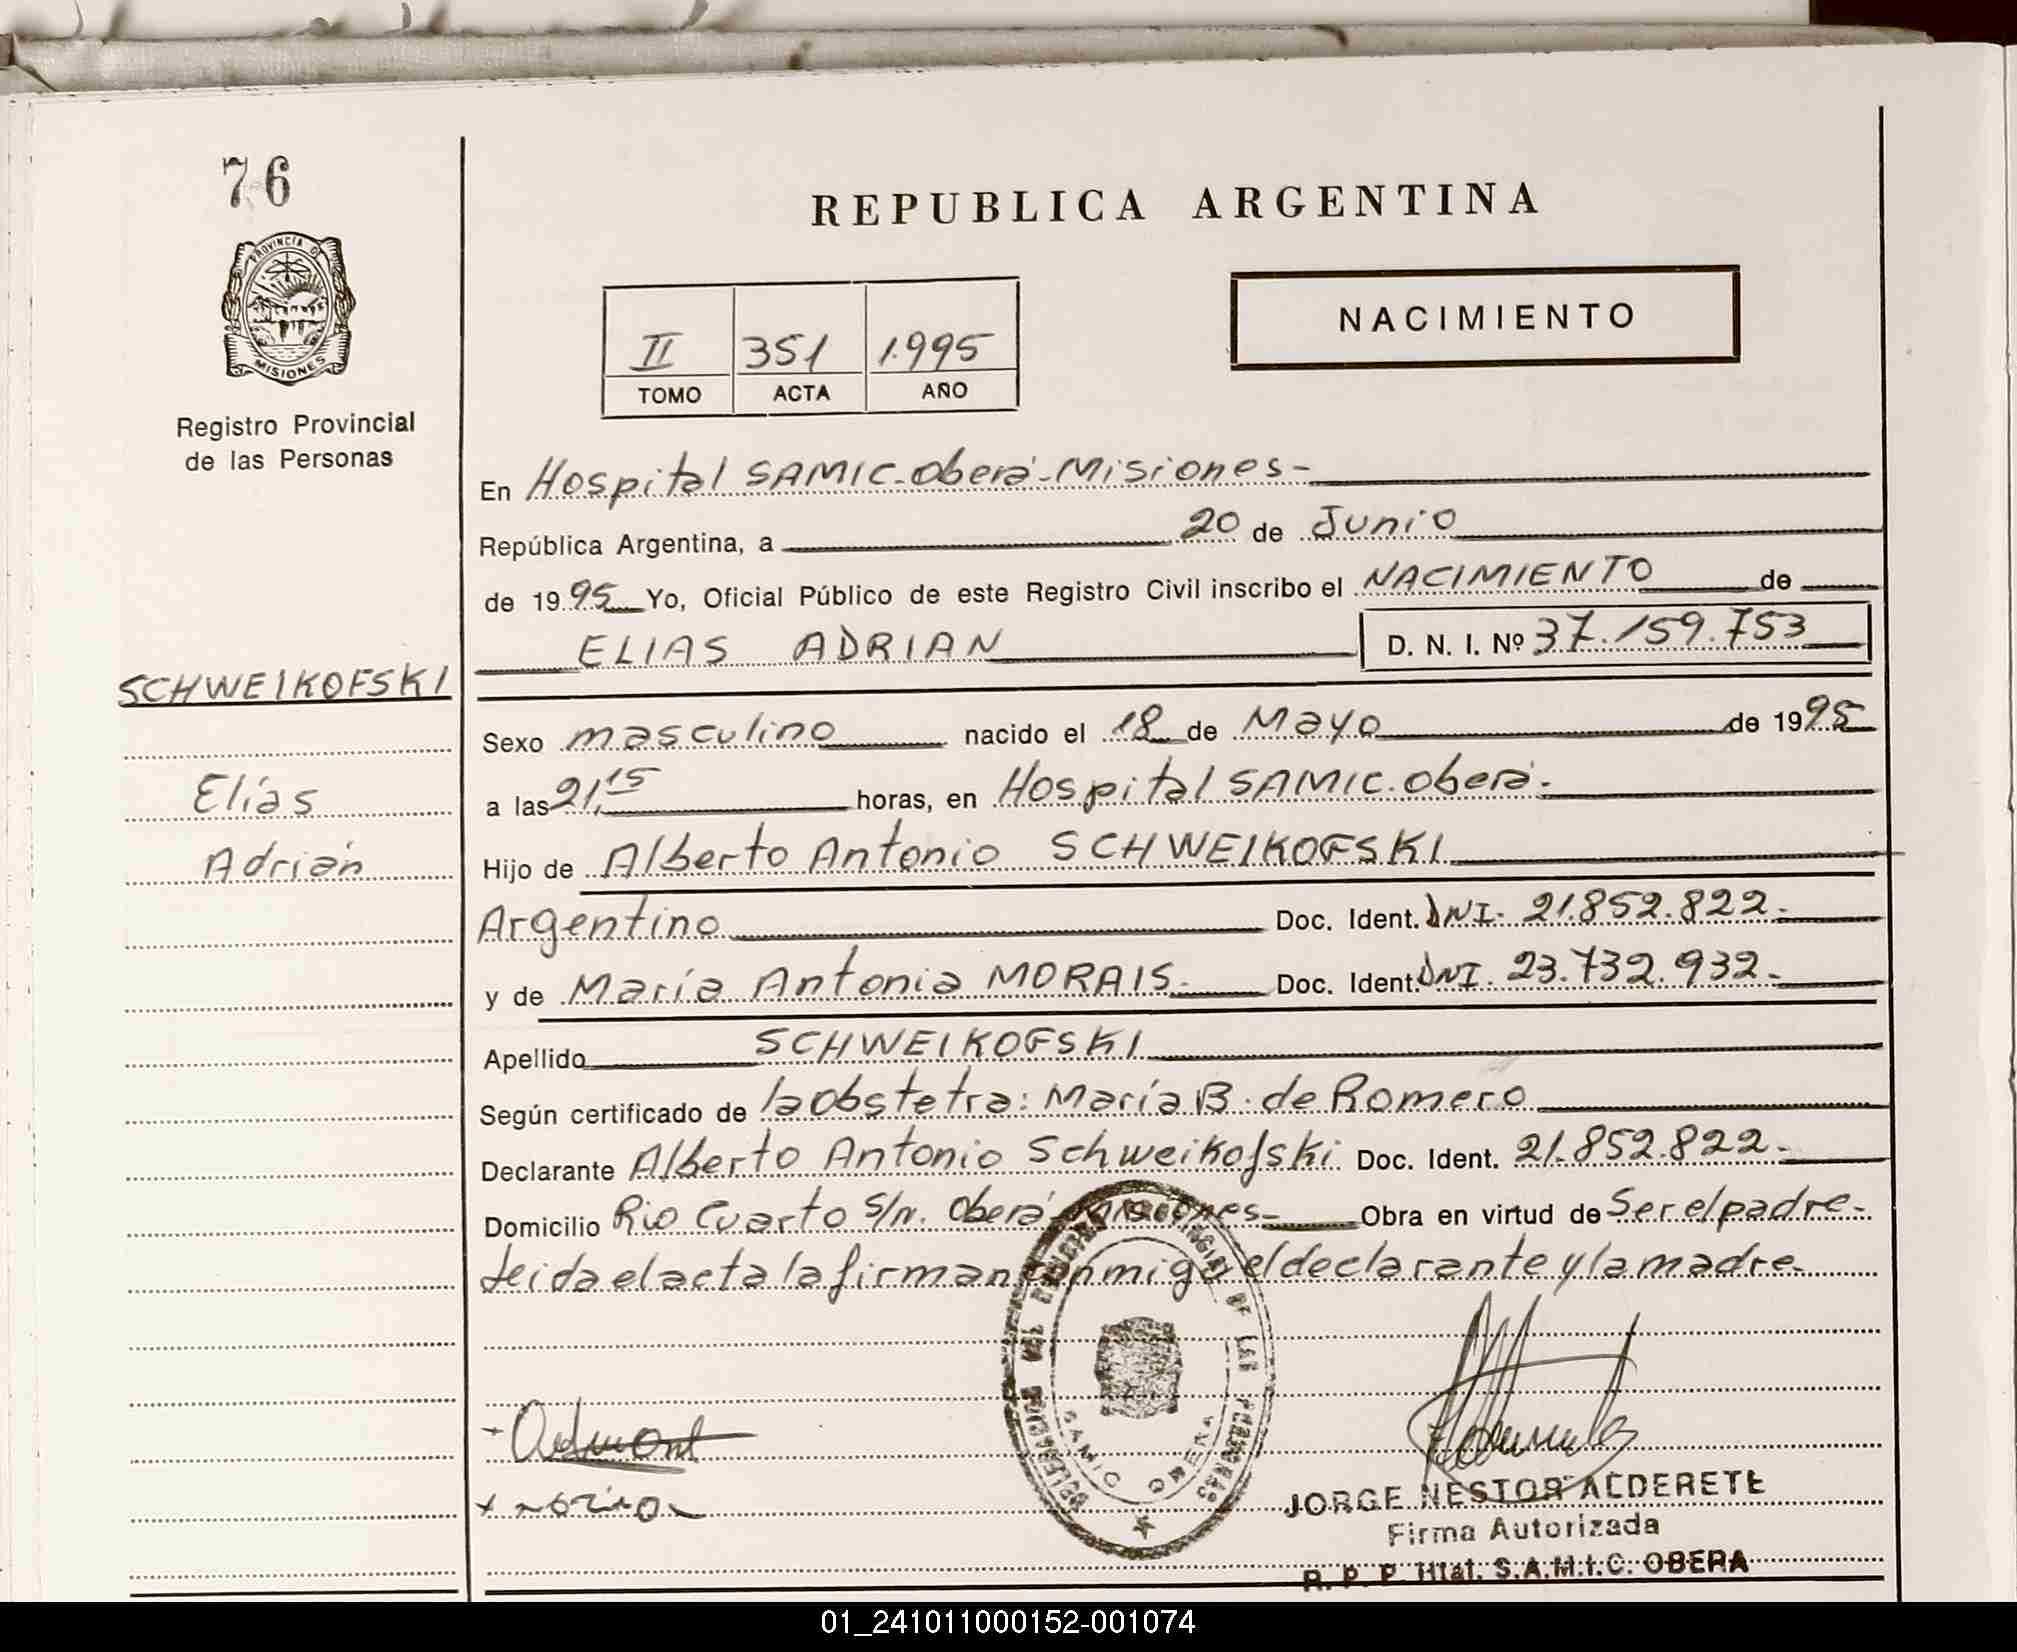 76
PROVINCIA DE
MISIONES
Registro Provincial
de las Personas
REPUBLICA ARGENTINA
II 351 1.995
TOMO ACTA AÑO
NACIMIENTO
En Hospital SAMIC-Oberá-Misiones-
República Argentina, a 20 de Junio
de 1995 Yo, Oficial Público de este Registro Civil inscribo el NACIMIENTO de
ELIAS ADRIAN D. N. I. Nº 37.159.753
SCHWEIKOFSKI
Elías
Adrián
Sexo masculino nacido el 18 de Mayo de 1995
a las 21,15 horas, en Hospital SAMIC. Oberá-
Hijo de Alberto Antonio SCHWEIKOFSKI
Argentino Doc. Ident. DNI. 21.852.822-
y de María Antonia MORAIS- Doc. Ident. DNI. 23.732.932-
Apellido SCHWEIKOFSKI
Según certificado de la obstetra: María B. de Romero
Declarante Alberto Antonio Schweikofski Doc. Ident. 21.852.822-
Domicilio Rio Cuarto S/n. Oberá Misiones- Obra en virtud de Ser el padre-
Leida el acta la firman conmigo el declarante y la madre-
SAMIC OBERA
JORGE NESTOR ALDERETE
Firma Autorizada
R. P. P. Htal. S.A.M.I.C. OBERA
01_241011000152-001074